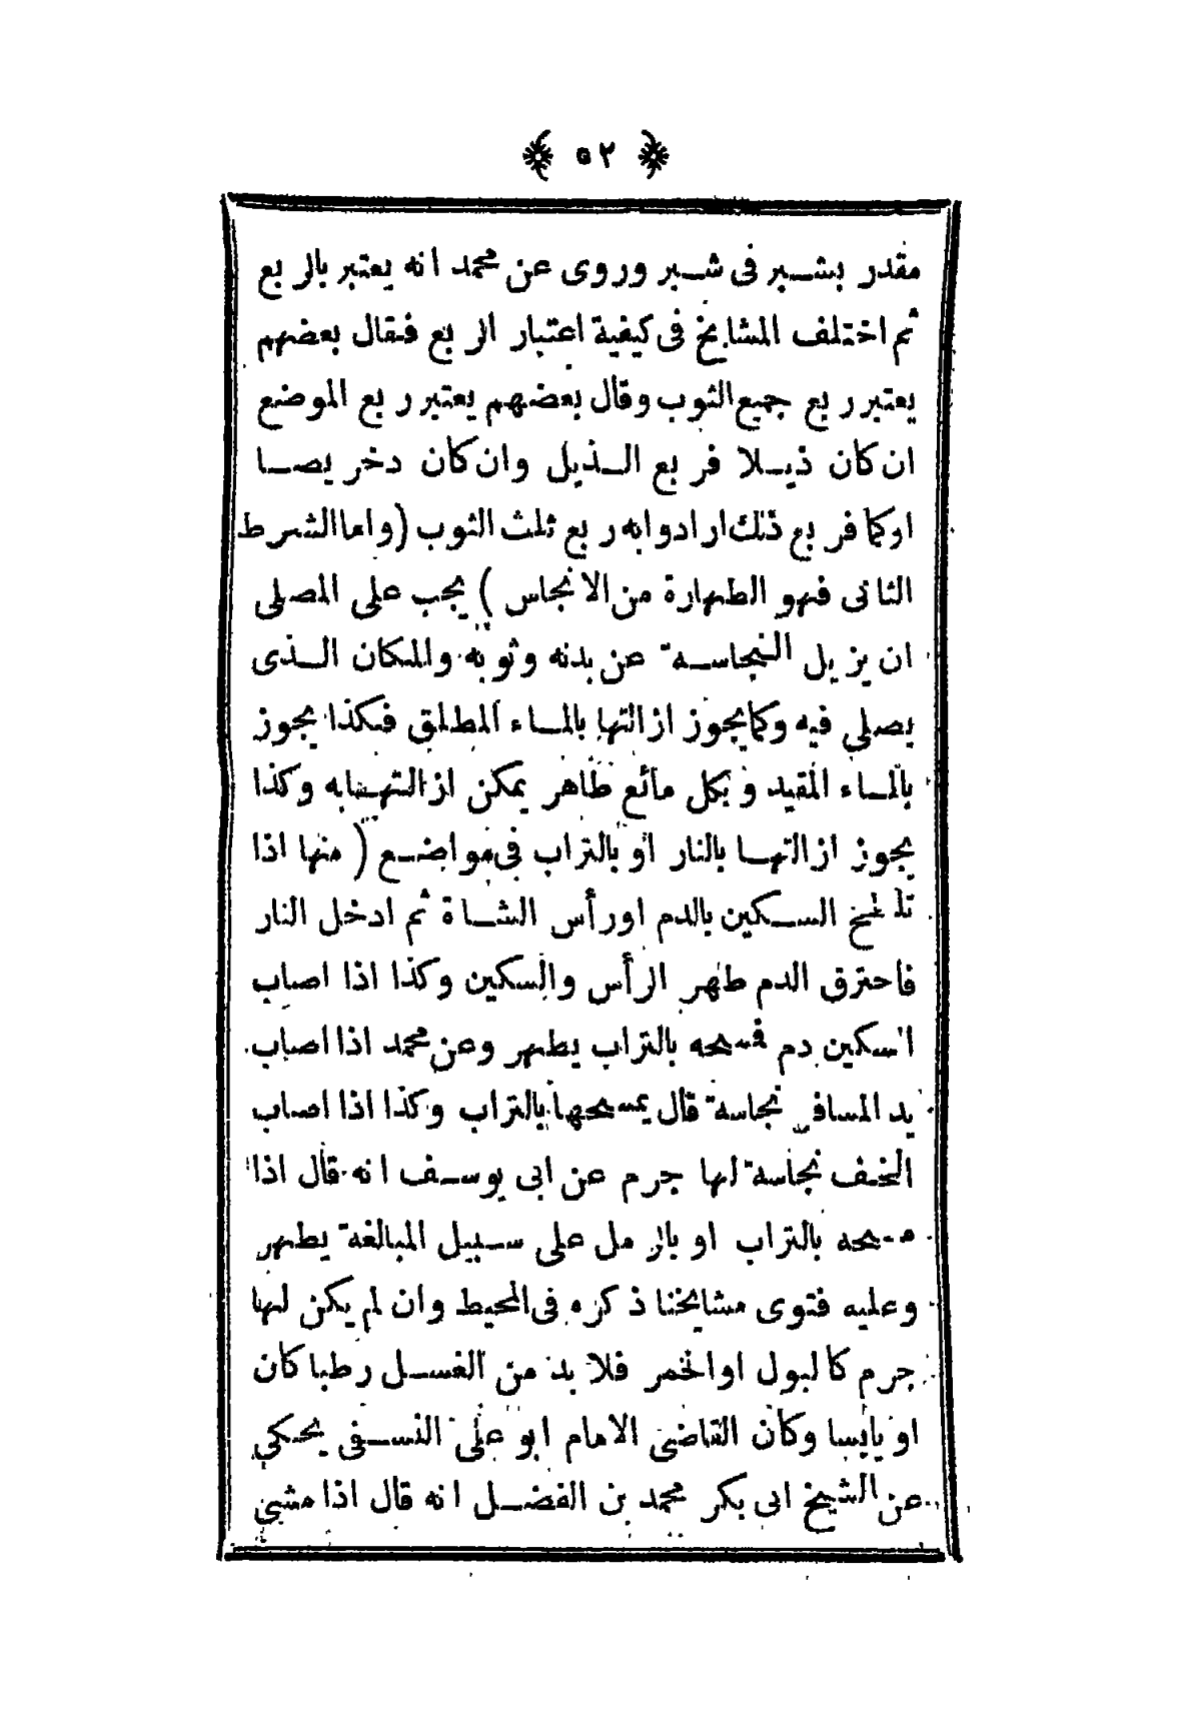 ﴿ ٥٢ ﴾
مقدر بشبر فى شبر وروى عن محمد انه يعتبر بالربع
ثم اختلف المشايخ فى كيفية اعتبار الربع فقال بعضهم
يعتبر ربع جميع الثوب وقال بعضهم يعتبر ربع الموضع
ان كان ذيلا فربع الذيل وان كان دخريصا
اوكما فربع ذلك ارادوا به ربع ثلث الثوب (واما الشرط
الثانى فهو الطهارة من الانجاس ) يجب على المصلى
ان يزيل النجاسة عن بدنه وثوبه والمكان الذى
يصلى فيه وكما يجوز ازالتها بالماء المطلق فكذا يجوز
بالماء المقيد وبكل مائع طاهر يمكن ازالتها به وكذا
يجوز ازالتها بالنار او بالتراب فى مواضع ( منها اذا
تلطخ السكين بالدم اورأس الشاة ثم ادخل النار
فاحترق الدم طهر الرأس والسكين وكذا اذا اصاب
السكين دم فمسحه بالتراب يطهر وعن محمد اذا اصاب
يد المسافر نجاسة قال يمسحها بالتراب وكذا اذا اصاب
الخف نجاسة لها جرم عن ابى يوسف انه قال اذا
مسحه بالتراب او بالرمل على سبيل المبالغة يطهر
وعليه فتوى مشايخنا ذكره فى المحيط وان لم يكن لها
جرم كالبول اوالخمر فلا بد من الغسل رطبا كان
او يابسا وكان القاضى الامام ابو على النسفى يحكى
عن الشيخ ابى بكر محمد بن الفضل انه قال اذا مشى